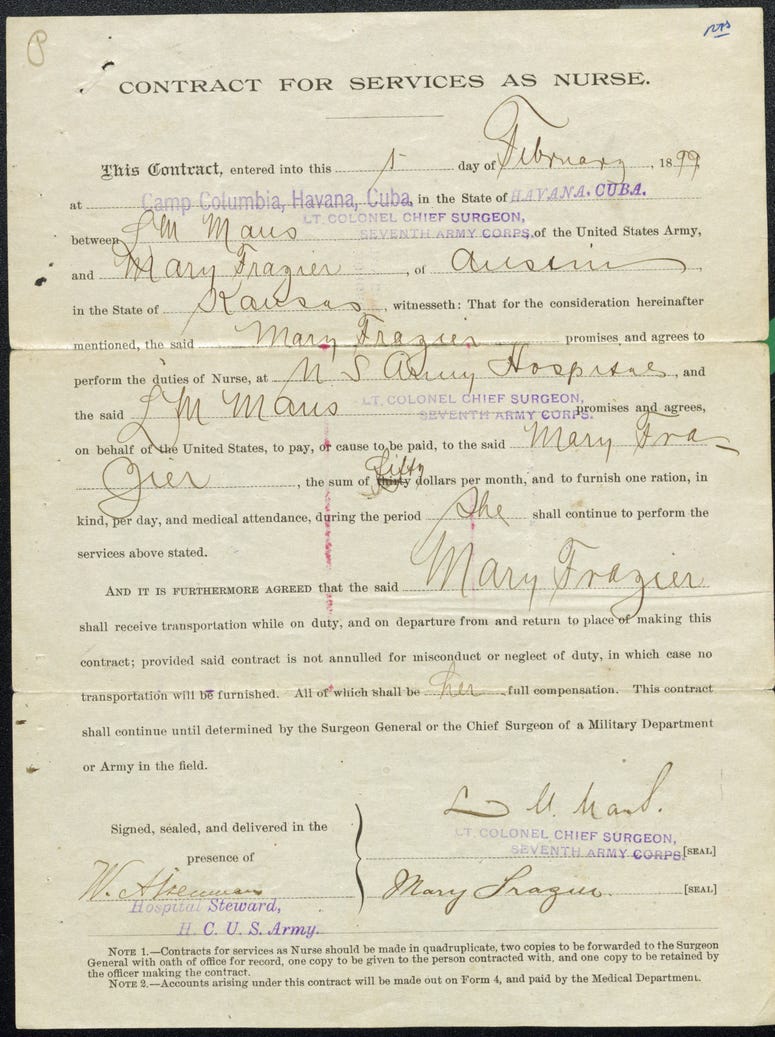 CONTRACT FOR SERVICES AS NURSE.
This Contract, entered into this 1 day of February, 1899,
at Camp Columbia, Havana, Cuba, in the State of HAVANA. CUBA.
LT. COLONEL CHIEF SURGEON,
between L M Maus SEVENTH ARMY CORPS, of the United States Army,
and Mary Frazier, of
in the State of Kansas, witnesseth: That for the consideration hereinafter
mentioned, the said Mary Frazier promises and agrees to
perform the duties of Nurse, at U S Army Hospital, and
LT. COLONEL CHIEF SURGEON,
the said L M Maus SEVENTH ARMY CORPS. promises and agrees,
on behalf of the United States, to pay, or cause to be paid, to the said Mary Fra-
zier, the sum of thirty Fifty dollars per month, and to furnish one ration, in
kind, per day, and medical attendance, during the period She shall continue to perform the
services above stated.
AND IT IS FURTHERMORE AGREED that the said Mary Frazier
shall receive transportation while on duty, and on departure from and return to place of making this
contract; provided said contract is not annulled for misconduct or neglect of duty, in which case no
transportation will be furnished. All of which shall be her full compensation. This contract
shall continue until determined by the Surgeon General or the Chief Surgeon of a Military Department
or Army in the field.
L M Maus.
Signed, sealed, and delivered in the
LT. COLONEL CHIEF SURGEON,
presence of SEVENTH ARMY CORPS. [SEAL]
W. Mary Frazier. [SEAL]
Hospital Steward,
H. C. U. S. Army.
NOTE 1.—Contracts for services as Nurse should be made in quadruplicate, two copies to be forwarded to the Surgeon
General with oath of office for record, one copy to be given to the person contracted with, and one copy to be retained by
the officer making the contract.
NOTE 2.—Accounts arising under this contract will be made out on Form 4, and paid by the Medical Department.